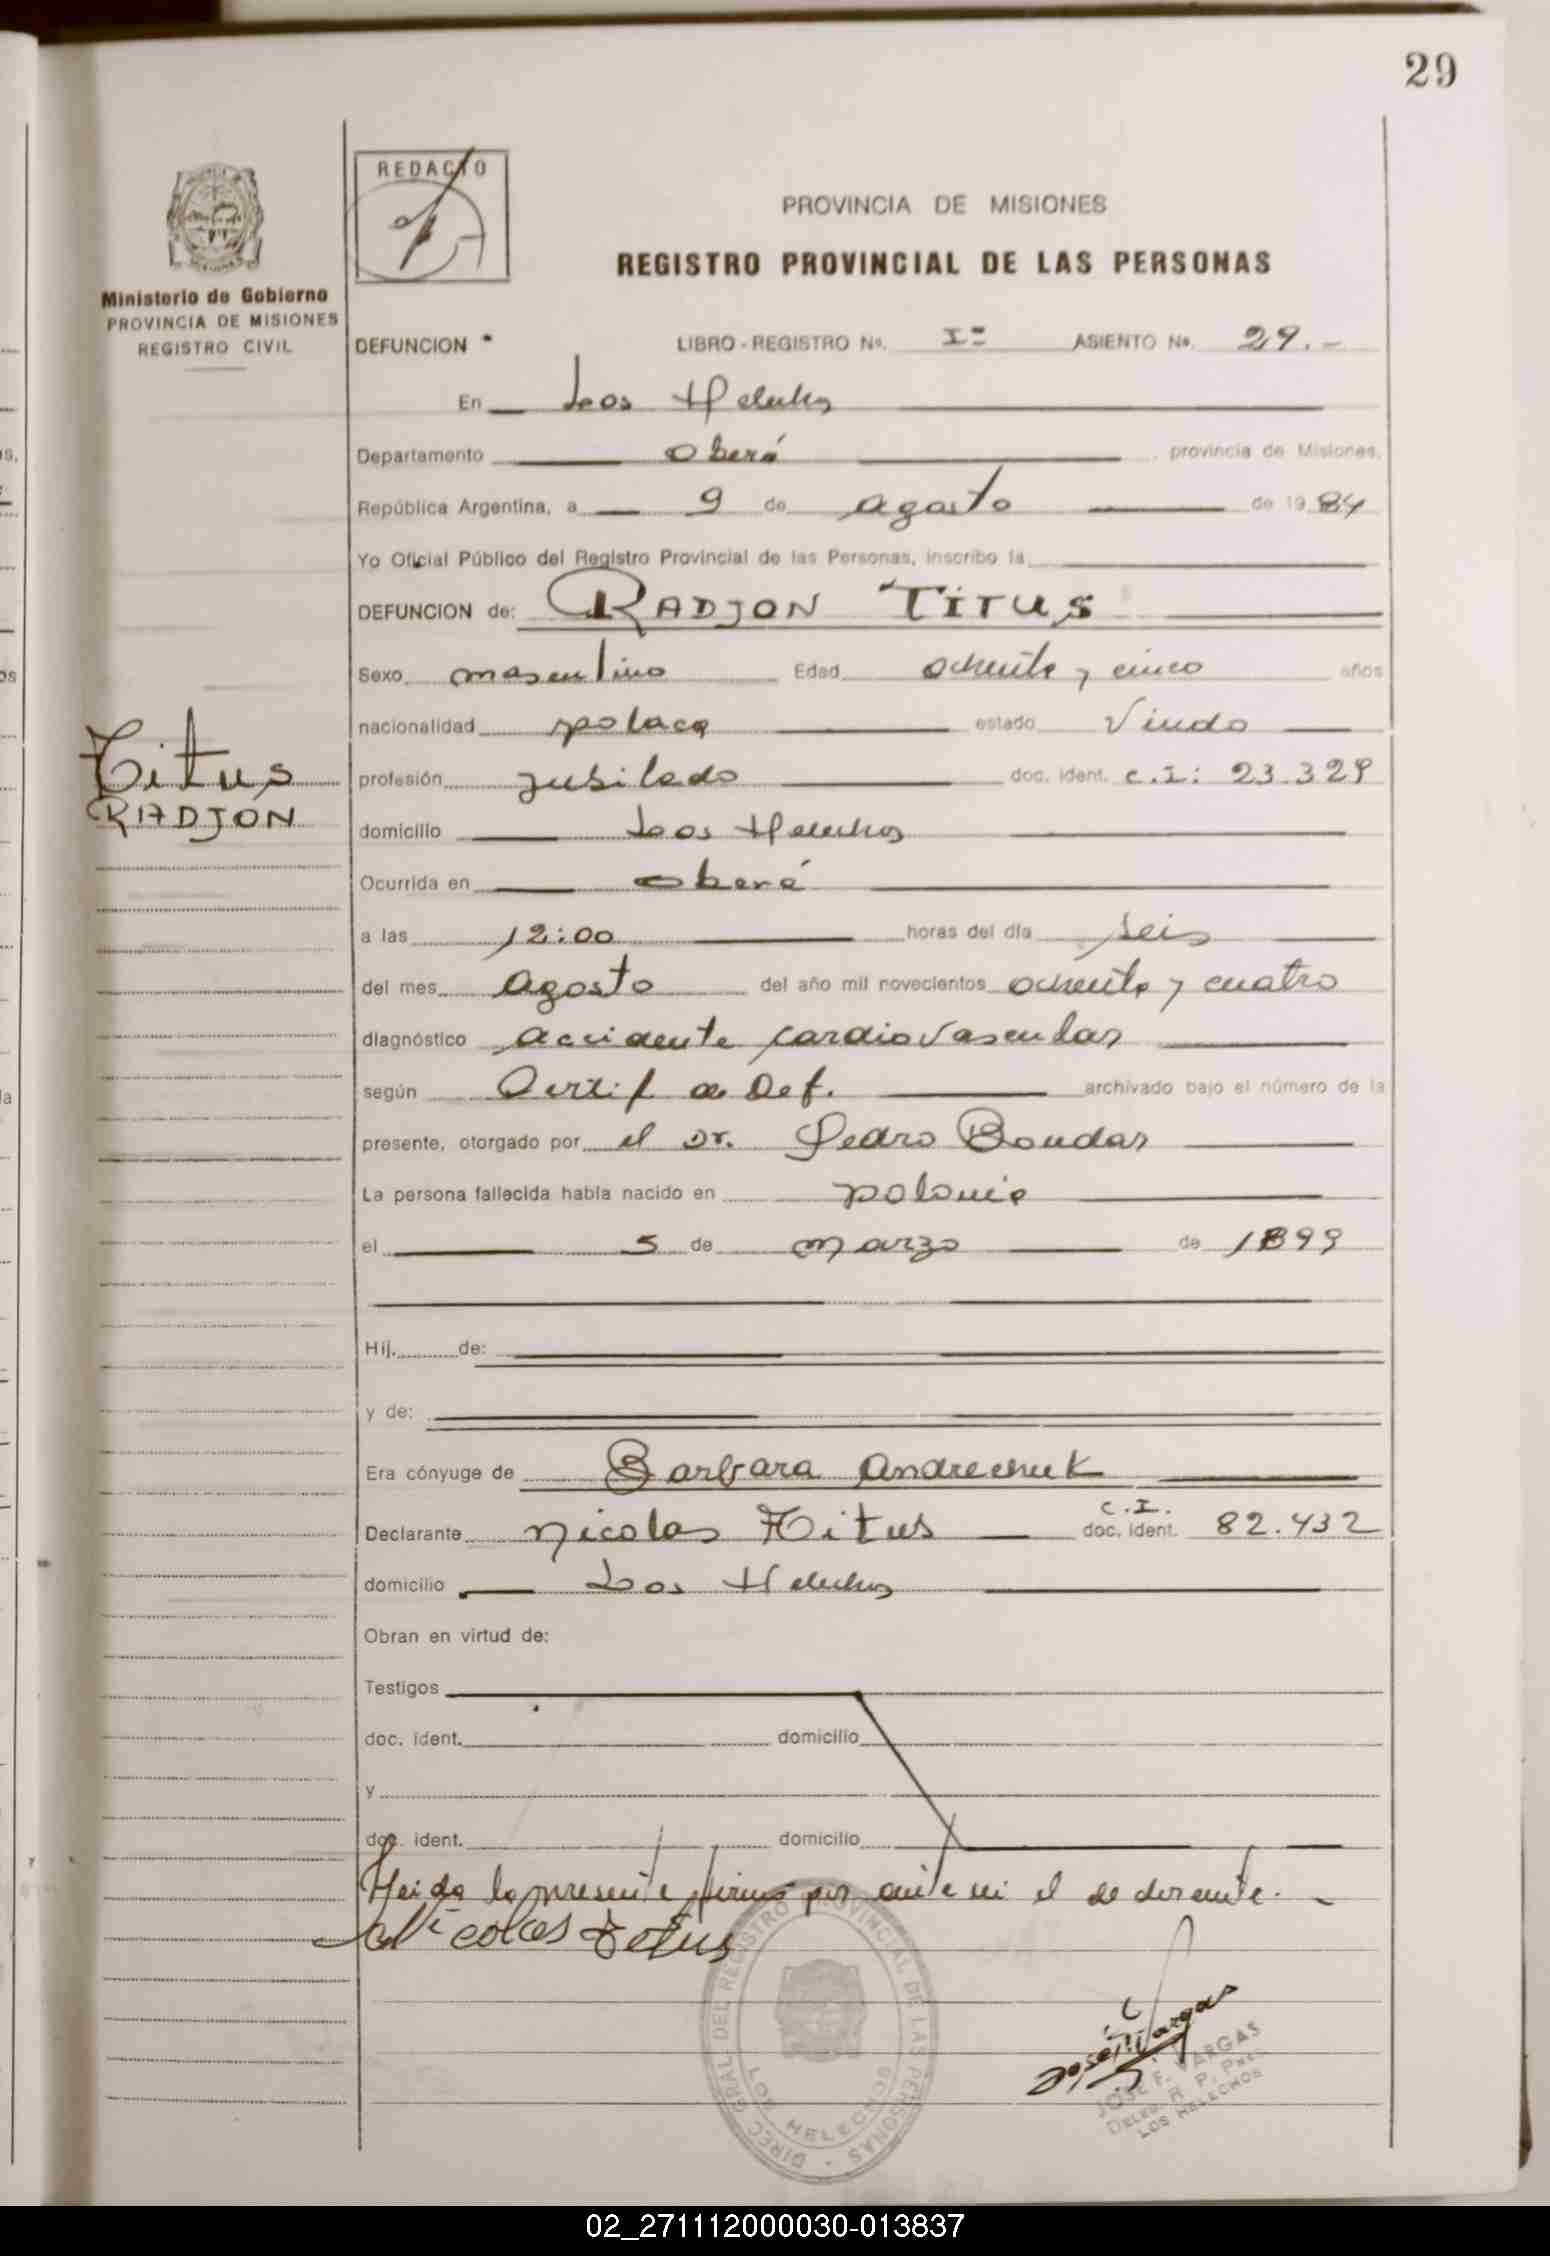 29
REDACTO
PROVINCIA DE MISIONES
REGISTRO PROVINCIAL DE LAS PERSONAS
Ministerio de Gobierno
PROVINCIA DE MISIONES
REGISTRO CIVIL
DEFUNCION LIBRO - REGISTRO No. Iº ASIENTO No. 29.-
En Los Helechos
Departamento Oberá provincia de Misiones,
República Argentina, a 9 de agosto de 1984
Yo Oficial Público del Registro Provincial de las Personas, inscribo la
DEFUNCION de: RADJON TITUS
Sexo masculino Edad ochenta y cinco años
nacionalidad polaca estado Viudo
Titus
RADJON
profesión jubilado doc. ident. C.I: 23.329
domicilio Los Helechos
Ocurrida en Oberá
a las 12:00 horas del día seis
del mes agosto del año mil novecientos ochenta y cuatro
diagnóstico accidente cardiovascular
según Certif de Def. archivado bajo el número de la
presente, otorgado por el Dr. Pedro Bondar
La persona fallecida había nacido en polonia
el 5 de marzo de 1899
Hij. de:
y de:
Era cónyuge de Barbara Andrechuk
Declarante Nicolas Titus C.I. doc. ident. 82.432
domicilio Los Helechos
Obran en virtud de:
Testigos
doc. ident. domicilio
y
doc. ident. domicilio
Leida la presente, firma por ante mi el declarante.
Nicolas Titus
DIREC. GRAL. DEL REGISTRO PROVINCIAL DE LAS PERSONAS
LOS HELECHOS
José F. Vargas
JOSE F. VARGAS
LOS HELECHOS
02_271112000030-013837